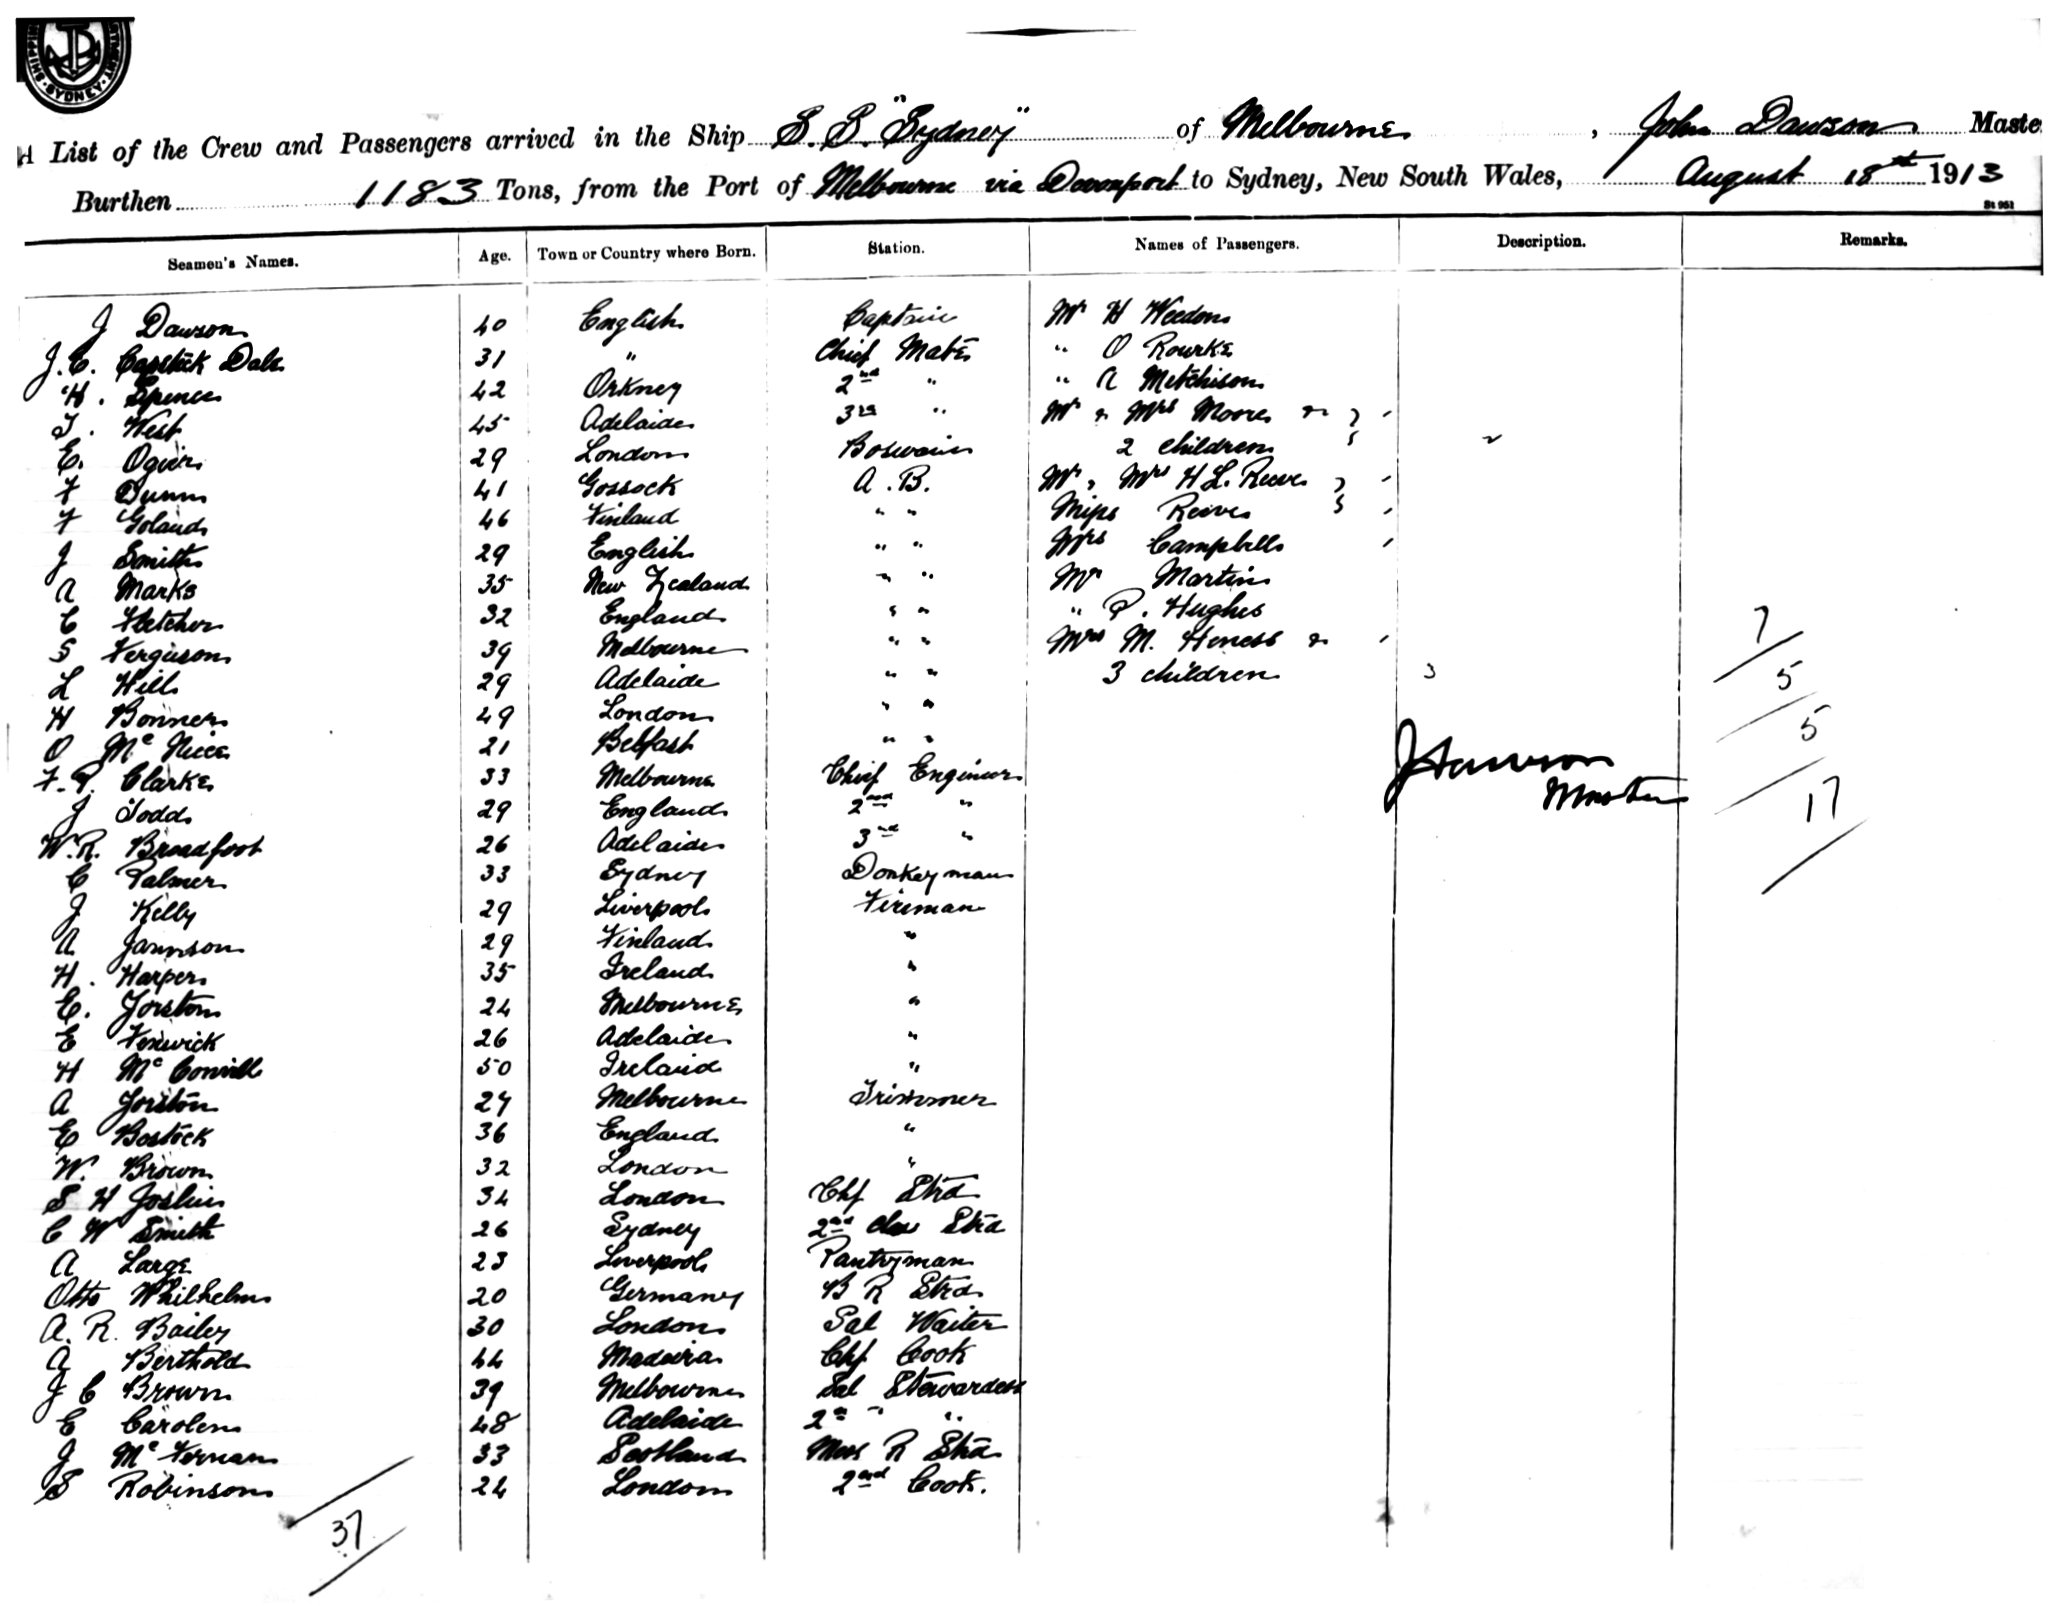 SHIPPI
SYDNEY
TMENT
A List of the Crew and Passengers arrived in the Ship S. S. "Sydney" of Melbourne, John Dawson Maste
Burthen 1183 Tons, from the Port of Melbourne via Devonport to Sydney, New South Wales, August 18th 1913
St 951
Seamen's Names. Age. Town or Country where Born. Station. Names of Passengers. Description. Remarks.
J Dawson 40 English Captain Mr H Weedon
J. C. Capstick Dale 31 " Chief Mate " O Rourke
H. Spence 42 Orkney 2nd " " A Metchison
T. West 45 Adelaide 3rd " Mr & Mrs Moore &
E. Ogier 29 London Boswain 2 children
F Dunn 41 Gossock A. B. Mr & Mrs H L. Reeve
F Goland 46 Finland " " Miss Reeves
J Smith 29 English " " Mrs Campbell
A Marks 35 New Zealand " " Mr Martin
C Fletcher 32 England " " " P. Hughes
S Ferguson 39 Melbourne " " Mrs M. Heness &
L Hill 29 Adelaide " " 3 children 3
H Bonner 49 London " "
O McNiece 21 Belfast " "
F. P. Clarke 33 Melbourne Chief Engineer
J Todd 29 England 2nd "
W. R. Broadfoot 26 Adelaide 3rd "
C Palmer 33 Sydney Donkeyman
J Kelly 29 Liverpool Fireman
A Jannson 29 Finland "
H. Harper 35 Ireland "
E. Jorston 24 Melbourne "
E Fenwick 26 Adelaide "
H McConvill 50 Ireland "
A Jorston 27 Melbourne Trimmer
E Bostock 36 England "
W. Brown 32 London "
S H Joslin 34 London Chf Strd
C W Smith 26 Sydney 2nd class Strd
A Large 23 Liverpool Pantryman
Otto Whilhelm 20 Germany B R Strd
A. R. Bailey 30 London Sal Waiter
A Berthold 44 Madeira Chf Cook
J C Brown 39 Melbourne Sal Stewardess
E Carolen 48 Adelaide 2nd " "
J McFernan 33 Scotland Mess R Strd
S Robinson 24 London 2nd Cook.
37
7
5
5
17
J Dawson
Master